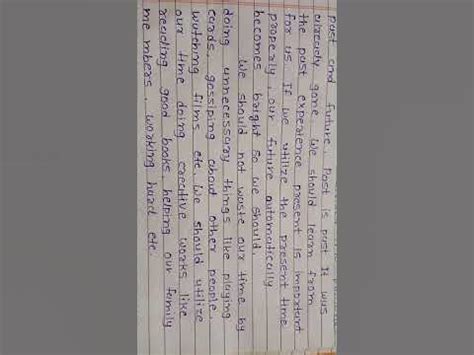 past and future. Past is past It was
already gone. We should learn from
the past experience present is important
for us. If we utilize the present time
properly, our future automatically
becomes bright so we should.
We should not waste our time by
doing unnecessary things like playing
cards, gossiping about other people,
watching films etc. We should utilize
our time doing creative works like
reading good books helping our family
members, working hard etc.